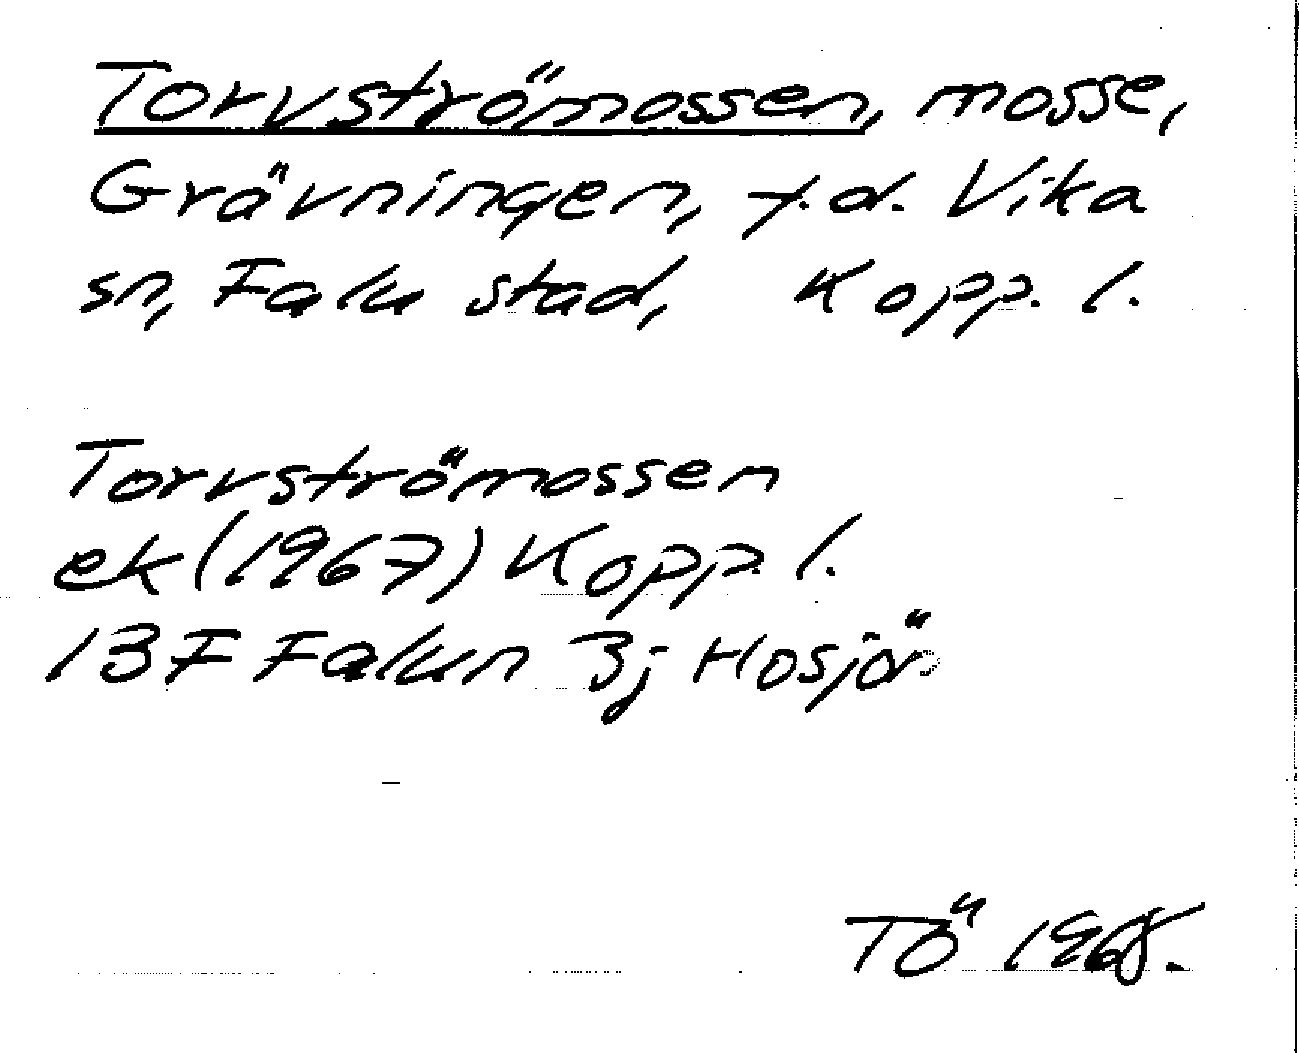 Torvströmossen, mosse,
Grävningen, f.d. Vika
sn, Falu stad, Kopp. l.
Torvströmossen
ek (1967) Kopp. l.
13F Falun 3j Hosjö
TÖ 1968.